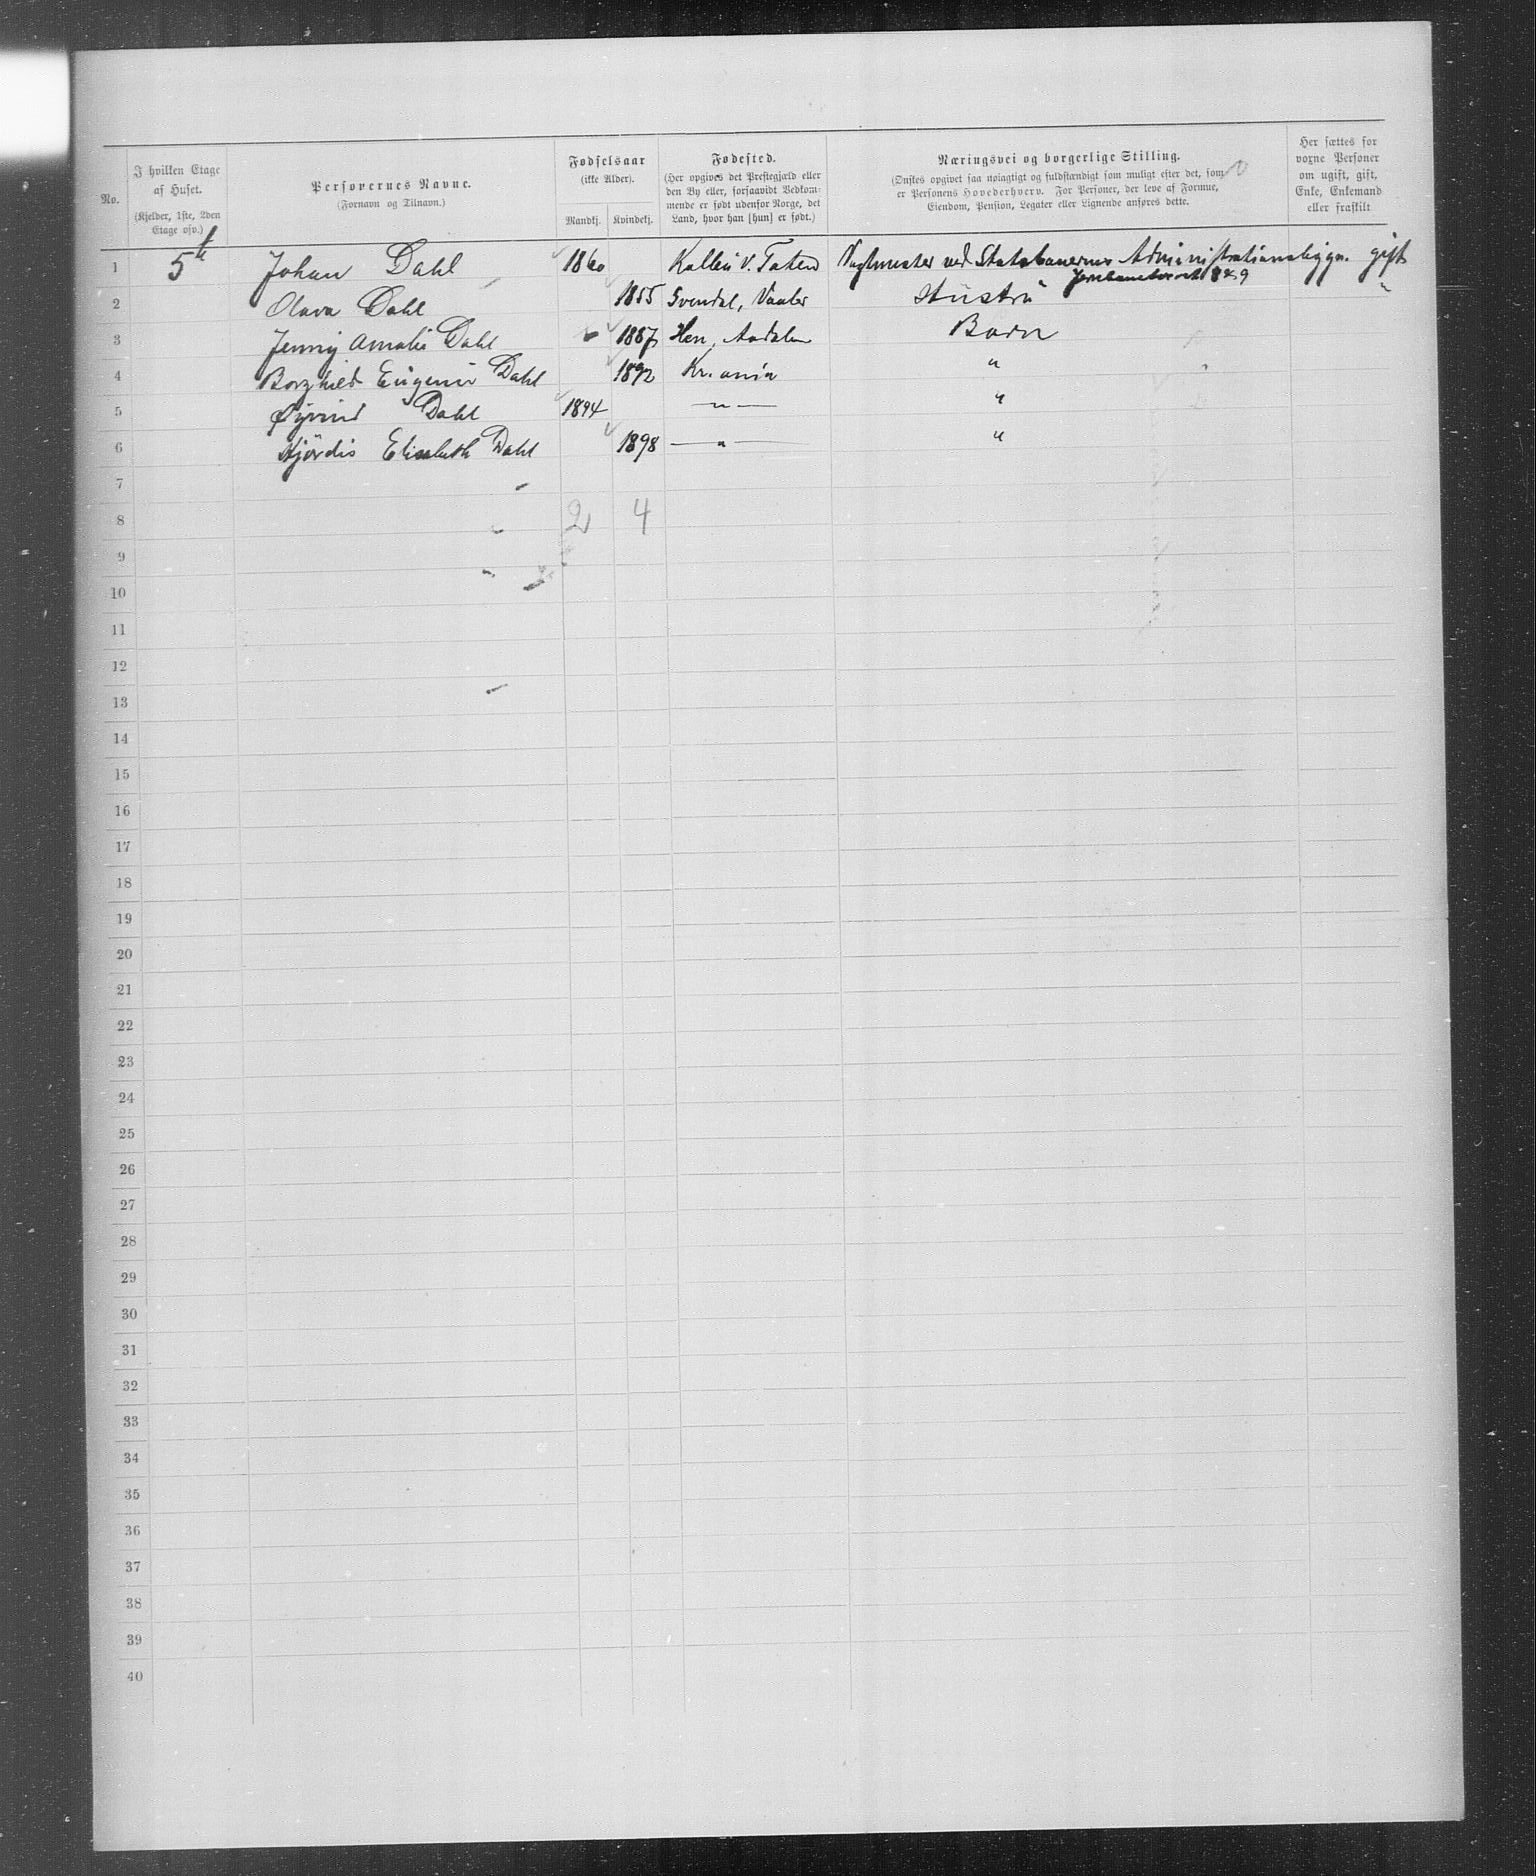 No.
I hvilken Etage af Huset.
(Kjelder, 1ste, 2den Etage osv.)
Personernes Navne.
(Fornavn og Tilnavn.)
Fødselsaar
(ikke Alder).
Mandkj. Kvindekj.
Fødested.
(Her opgives det Prestegjæld eller
den By eller, forsaavidt Vedkom-
mende er født udenfor Norge, det
Land, hvor han [hun] er født.)
Næringsvei og borgerlige Stilling.
(Ønskes opgivet saa nøiagtigt og fuldstændigt som muligt efter det, som
er Personens Hovederhverv. For Personer, der leve af Formue,
Eiendom, Pension, Legater eller Lignende anføres dette.
Her sættes for
voxne Personer
om ugift, gift,
Enke, Enkemand
eller fraskilt
1 5te Johan Dahl 1860 Vagtmester ved Statsbanernes Administrationsbygn. gift
2 Olava Dahl 1855 Svendal, Vaaler Hustru "
3 Jenny Amalie Dahl 1887 Hen, Aadalen Barn
4 Borghild Eugenie Dahl 1892 Kr.ania "
5 Øyvind Dahl 1894 — " — "
6 Hjördis Elisabeth Dahl 1898 — " — "
7
8 2 4
9
10
11
12
13
14
15
16
17
18
19
20
21
22
23
24
25
26
27
28
29
30
31
32
33
34
35
36
37
38
39
40